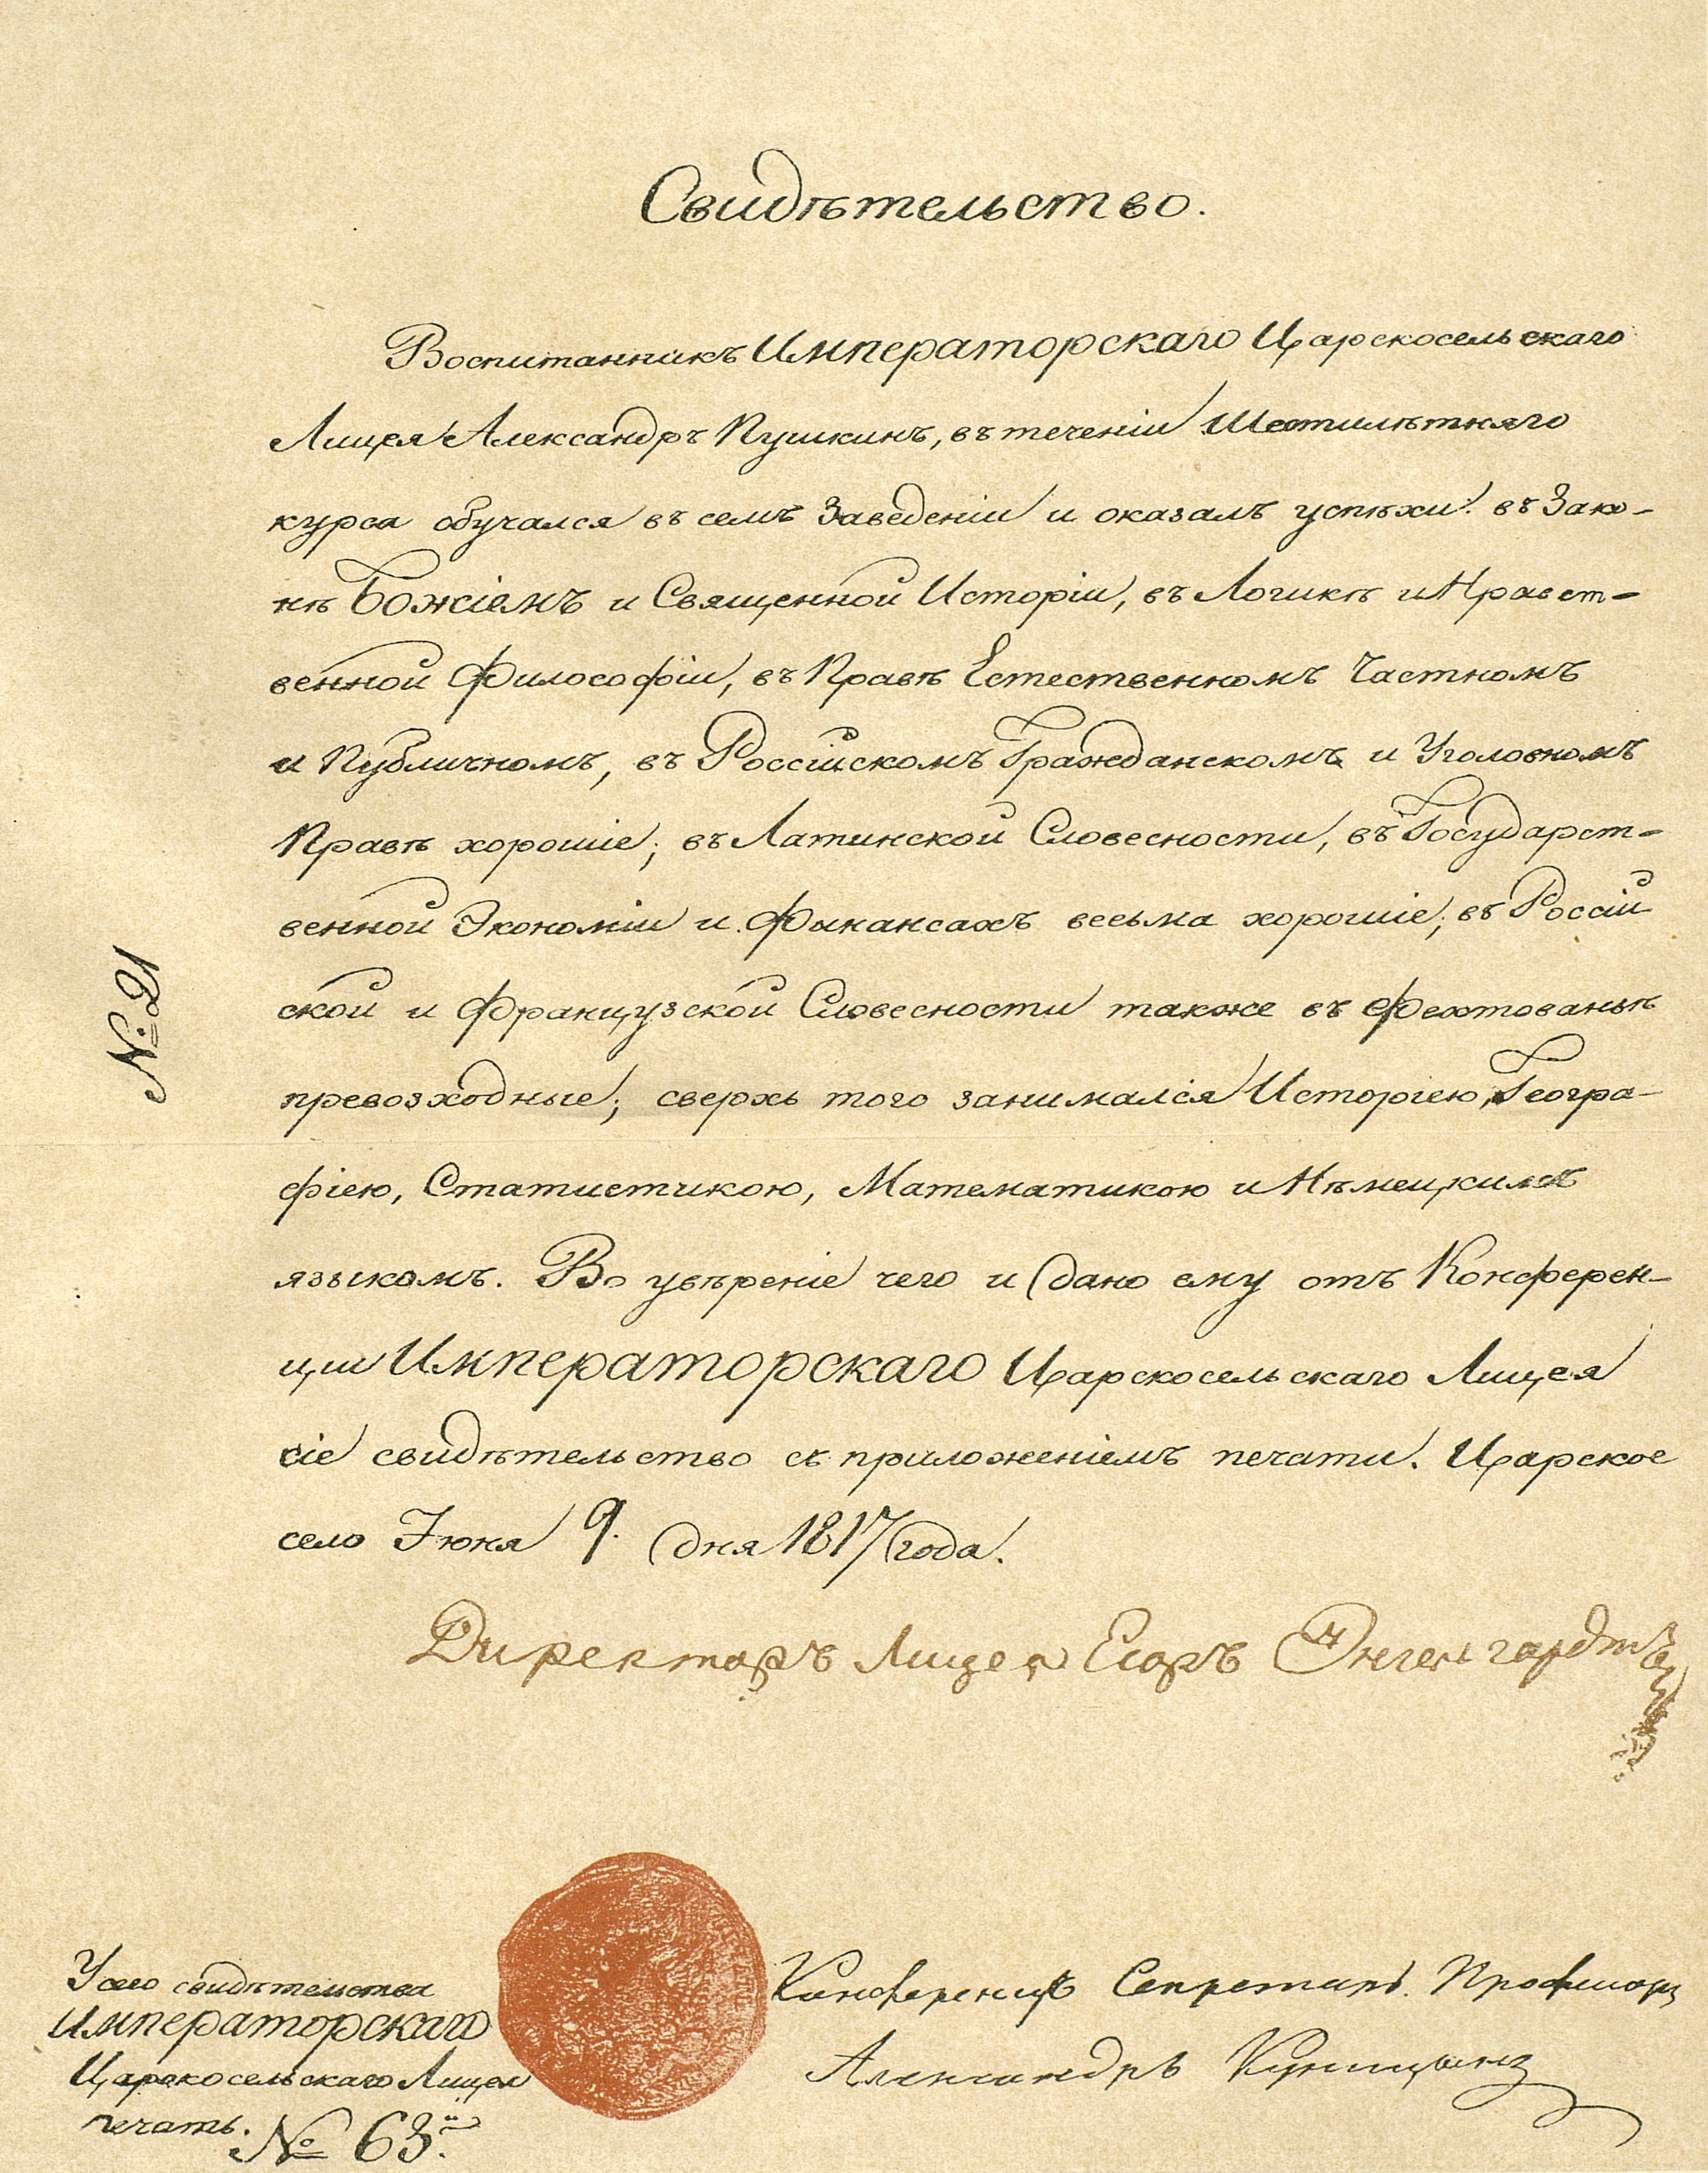 Свидѣтельство.
Воспитанникъ Императорскаго Царскосельскаго
Лицея Александръ Пушкинъ, въ теченіи Шестилѣтняго
курса обучался въ семъ Заведеніи и оказалъ успѣхи: въ Зако-
нѣ Божіемъ и Священной Исторіи, въ Логикѣ и Нравст-
венной Философіи, въ Правѣ Естественномъ Частномъ
и Публичномъ, въ Россійскомъ Гражданскомъ и Уголовномъ
Правѣ хорошіе; въ Латинской Словесности, въ Государст-
венной Экономіи и Финансахъ весьма хорошіе; въ Россій
ской и Французской Словесности также въ Фехтованьѣ
превозходные; сверхь того занимался Исторіею, Геогра-
фіею, Статистикою, Математикою и Нѣмецкимъ
языкомъ. Во увѣреніе чего и дано ему отъ Конферен-
ціи Императорскаго Царскосельскаго Лицея
сіе свидѣтельство съ приложеніемъ печати. Царское
село Іюня 9. дня 1817 года.
Директоръ Лицея Егоръ Энгельгардтъ
№ 21
У сего свидѣтельства
Императорскаго
Царскосельскаго Лицея
печать.
№ 63.й
Конференцъ Секретарь. Профессоръ
Александръ Куницынъ